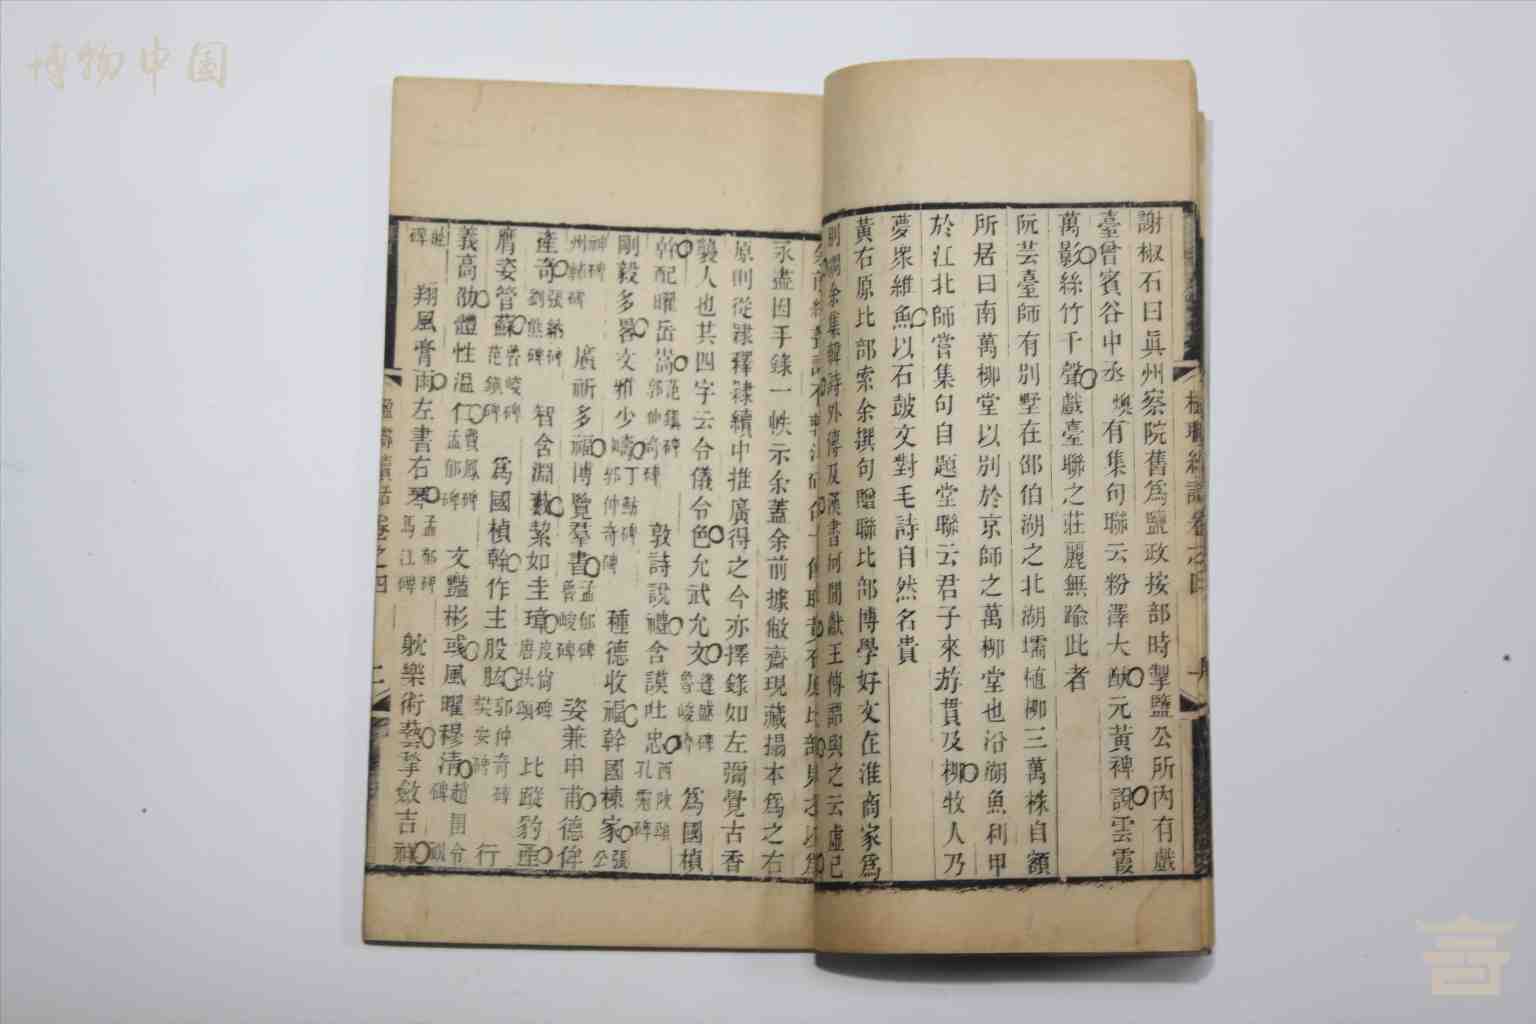 博物中国
謝椒石曰眞州察院舊爲鹽政按部時掣鹽公所內有戲
臺曾賓谷中丞燠有集句聯云粉澤大猷元黃裨說雲霞
萬影絲竹千聲戲臺聯之莊麗無踰此者
阮芸臺師有別墅在邵伯湖之北湖壖植柳三萬株自額
所居曰南萬柳堂以別於京師之萬柳堂也沿湖魚利甲
於江北師嘗集句自題堂聯云君子來游貫及柳牧人乃
夢眾維魚以石鼓文對毛詩自然名貴
黃右原比部索余撰句贈聯比部博學好文在淮商家爲
別調余集韓詩外傳及漢書河閒獻王傳語與之云虛已
永盡因手錄一帙示余蓋余前據敝齋現藏搨本爲之右
原則從隸釋隸續中推廣得之今亦擇錄如左彌覺古香
襲人也其四字云令儀令色允武允文魯峻碑 爲國楨
幹配曜岳嵩范鎮碑郭仲奇碑 敦詩說禮含謨吐忠孔霱碑
剛毅多畧文雅少郭仲奇碑 種德收福幹國棟家張公
神碑 廣祈多福博覽羣書孟郁碑魯峻碑 姿兼申甫德侔
產奇張納碑劉熊碑 智含淵藪絜如圭璋度尚碑唐扶頌 比蹤豹產
膺姿管蘇魯峻碑范鎮碑 爲國楨幹作主股肱郭仲奇碑樊安碑 行
義高劭體性溫仁費鳳碑孟郁碑 文豔彬彧風曜穆清
碑 翔風膏雨左書右琴孟郁碑高江碑 躭樂術藝揫斂吉祥
楹聯續話卷之四 二